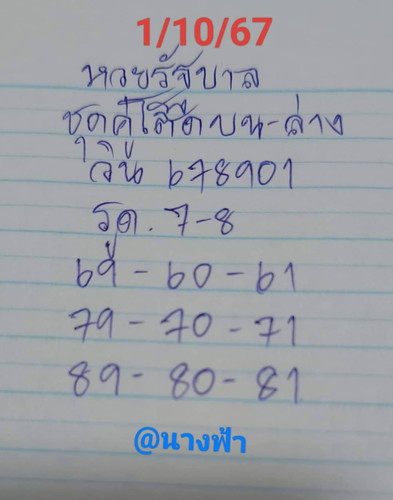 1/10/67
หวยรัฐบาล
ชุดคู่โต๊ดบน-ล่าง
วิน 678901
รูด. 7-8
69-60-61
79-70-71
89-80-81
@นางฟ้า